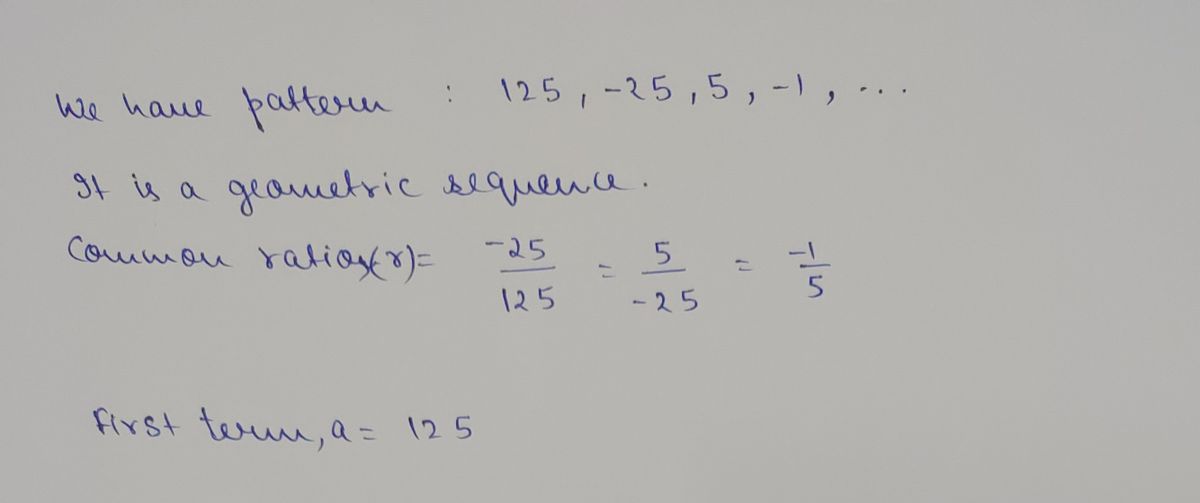 We have pattern : 125, -25, 5, -1, ...
It is a geometric sequence.
Common ratios(r)= -25/125 = 5/-25 = -1/5
First term, a = 125